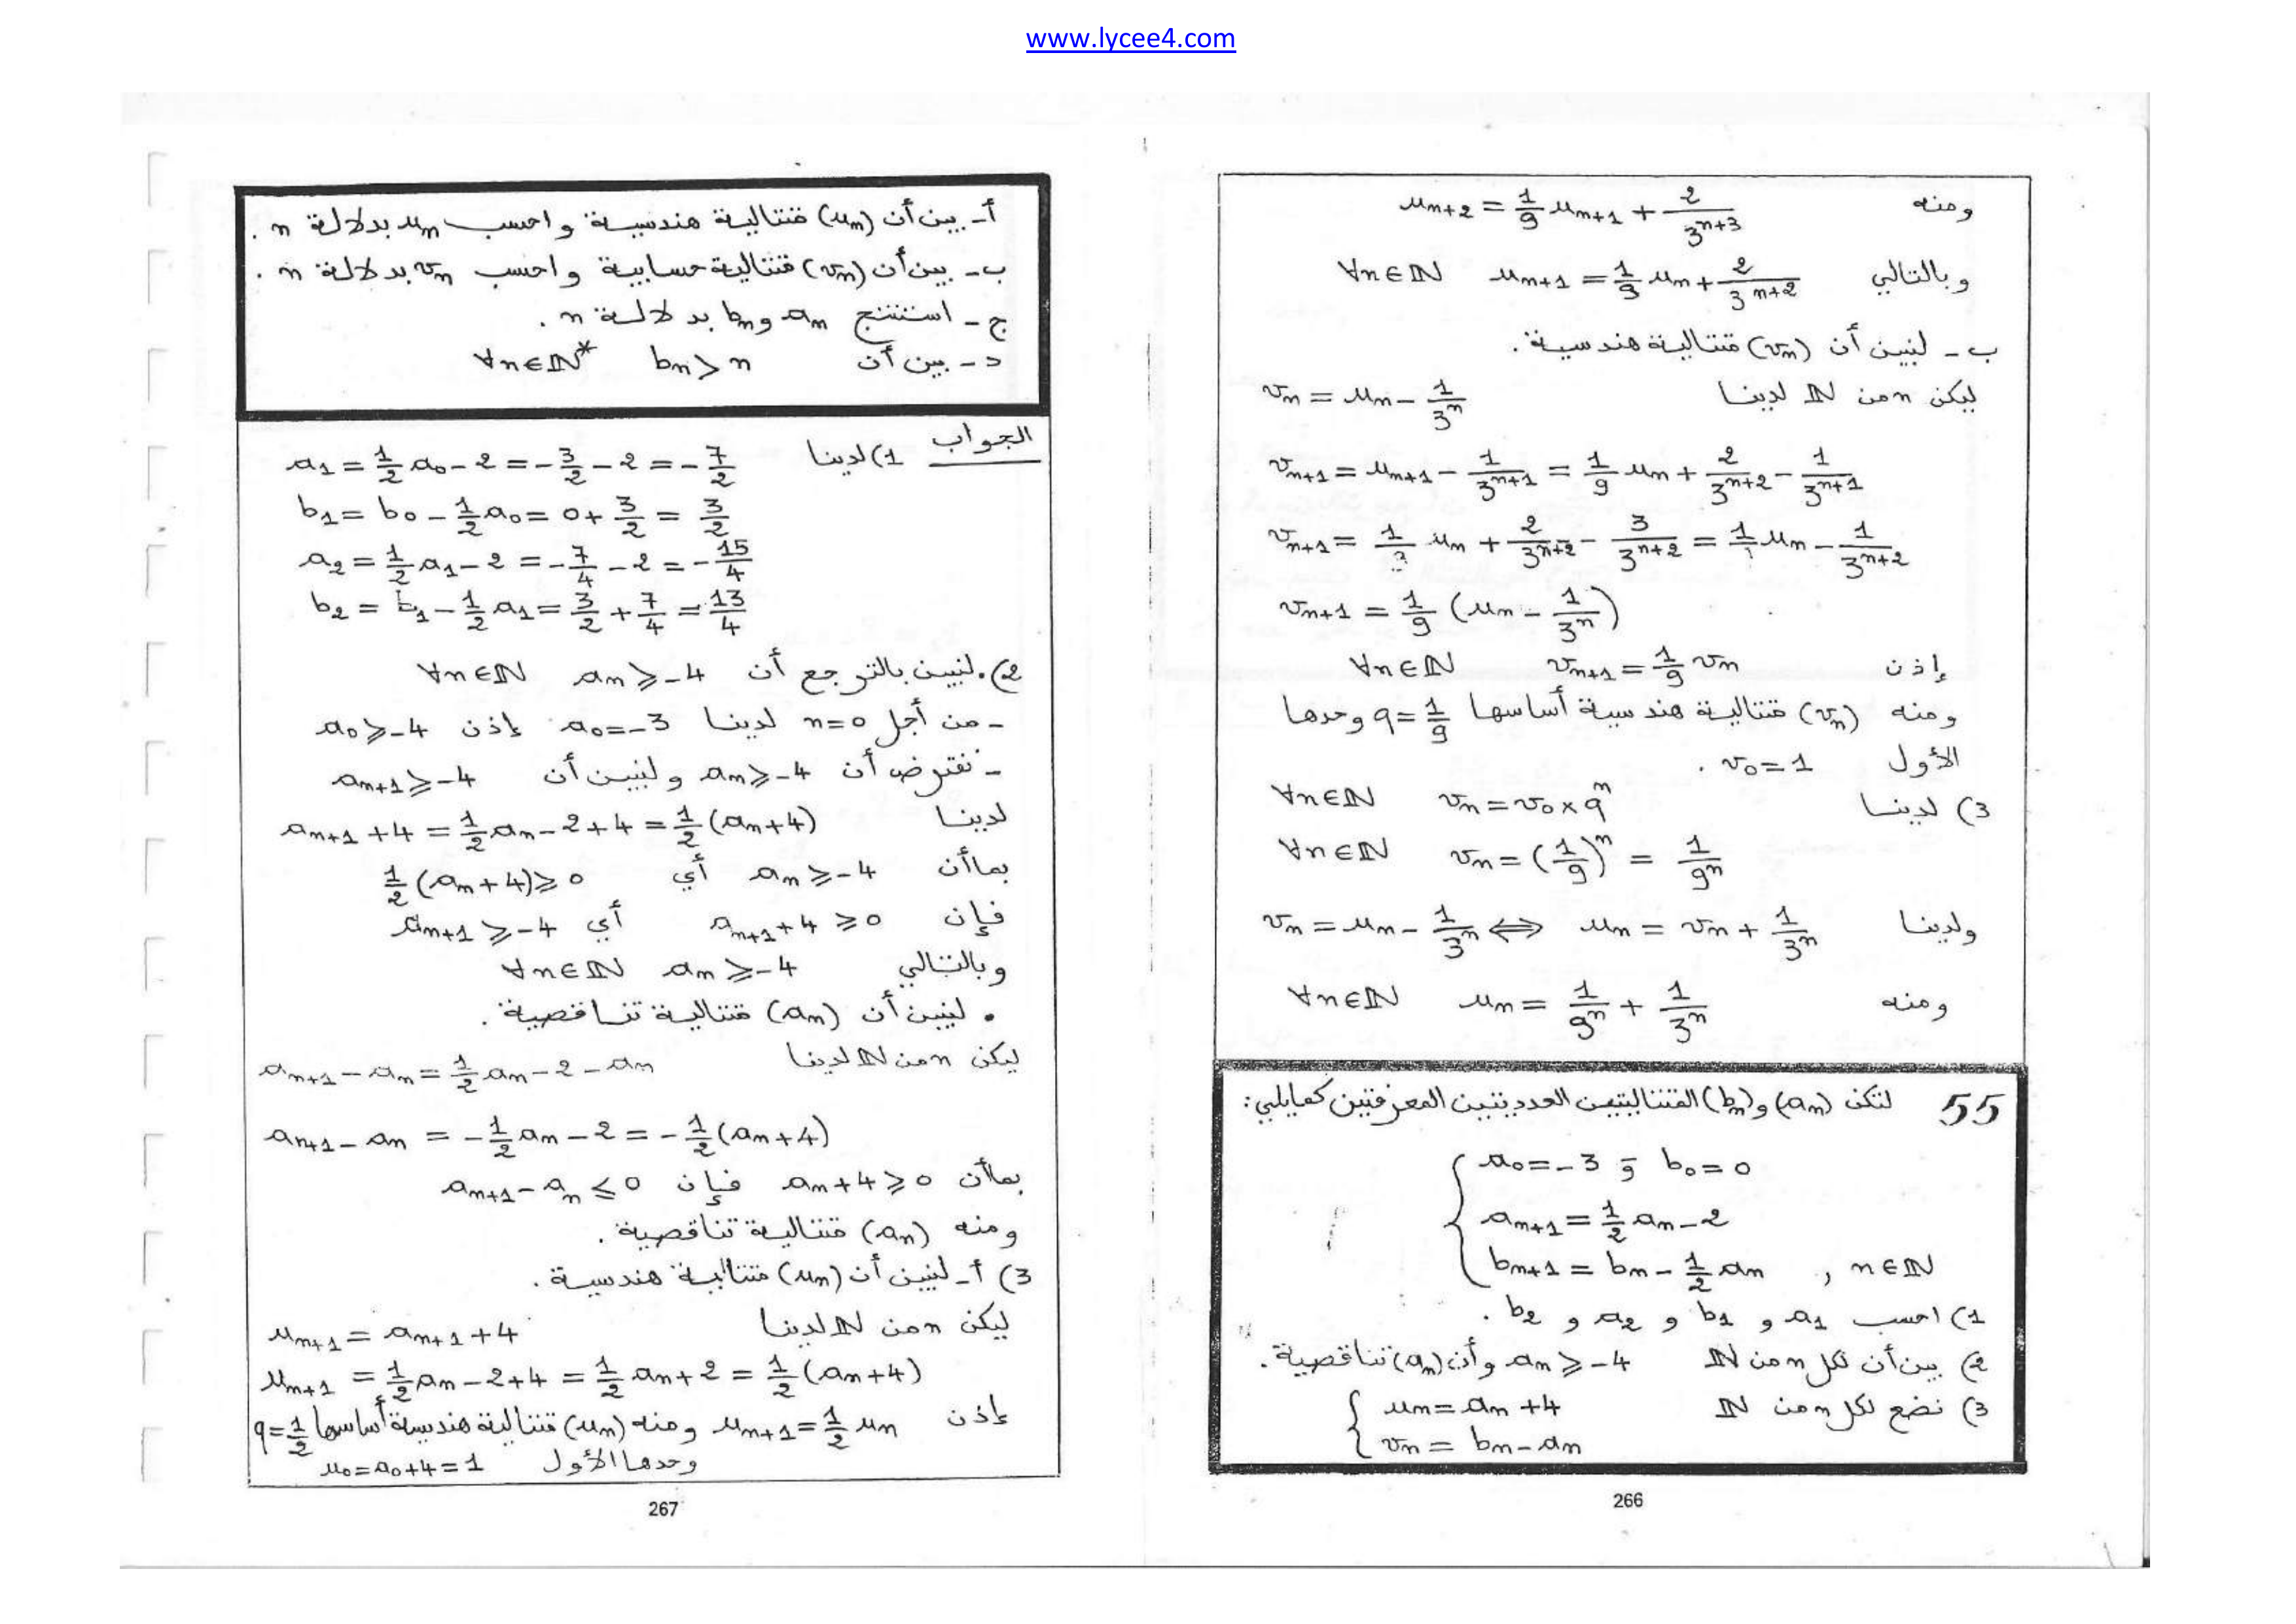 www.lycee4.com
ومنه u_{n+2} = \frac{1}{9} u_{n+1} + \frac{2}{3^{n+3}}
وبالتالي u_{n+1} = \frac{1}{9} u_n + \frac{2}{3^{n+2}} ∀n∈ℕ
ب - لنبين أن (v_n) متتالية هندسية.
ليكن n من ℕ لدينا v_n = u_n - \frac{1}{3^n}
v_{n+1} = u_{n+1} - \frac{1}{3^{n+1}} = \frac{1}{9} u_n + \frac{2}{3^{n+2}} - \frac{1}{3^{n+1}}
v_{n+1} = \frac{1}{9} u_n + \frac{2}{3^{n+2}} - \frac{3}{3^{n+2}} = \frac{1}{9} u_n - \frac{1}{3^{n+2}}
v_{n+1} = \frac{1}{9} (u_n - \frac{1}{3^n})
إذن v_{n+1} = \frac{1}{9} v_n ∀n∈ℕ
ومنه (v_n) متتالية هندسية أساسها q = \frac{1}{9} وحدها
الأول v_0 = 1 .
3) لدينا v_n = v_0 × q^n ∀n∈ℕ
v_n = (\frac{1}{9})^n = \frac{1}{9^n} ∀n∈ℕ
ولدينا v_n = u_n - \frac{1}{3^n} ⟺ u_n = v_n + \frac{1}{3^n}
ومنه u_n = \frac{1}{9^n} + \frac{1}{3^n} ∀n∈ℕ
55 لتكن (a_n) و (b_n) المتتاليتين العدديتين المعرفتين كمايلي:
a_0 = -3 و b_0 = 0
a_{n+1} = \frac{1}{2} a_n - 2
b_{n+1} = b_n - \frac{1}{2} a_n , n∈ℕ
1) احسب a_1 و b_1 و a_2 و b_2 .
2) بين أن لكل n من ℕ a_n ⩾ -4 وأن (a_n) تناقصية.
3) نضع لكل n من ℕ u_n = a_n + 4
v_n = b_n - a_n
266
أ- بين أن (u_n) متتالية هندسية واحسب u_n بدلالة n .
ب- بين أن (v_n) متتالية حسابية واحسب v_n بدلالة n .
ج - استنتج a_n و b_n بدلالة n .
د - بين أن b_n > n ∀n∈ℕ*
الجواب 1) لدينا a_1 = \frac{1}{2} a_0 - 2 = -\frac{3}{2} - 2 = -\frac{7}{2}
b_1 = b_0 - \frac{1}{2} a_0 = 0 + \frac{3}{2} = \frac{3}{2}
a_2 = \frac{1}{2} a_1 - 2 = -\frac{7}{4} - 2 = -\frac{15}{4}
b_2 = b_1 - \frac{1}{2} a_1 = \frac{3}{2} + \frac{7}{4} = \frac{13}{4}
2) . لنبين بالترجع أن a_n ⩾ -4 ∀n∈ℕ
- من أجل n=0 لدينا a_0 = -3 إذن a_0 ⩾ -4
- نفترض أن a_n ⩾ -4 ولنبين أن a_{n+1} ⩾ -4
لدينا a_{n+1} + 4 = \frac{1}{2} a_n - 2 + 4 = \frac{1}{2} (a_n + 4)
بما أن a_n ⩾ -4 أي \frac{1}{2} (a_n + 4) ⩾ 0
فإن a_{n+1} + 4 ⩾ 0 أي a_{n+1} ⩾ -4
وبالتالي a_n ⩾ -4 ∀n∈ℕ
• لنبين أن (a_n) متتالية تناقصية .
ليكن n من ℕ لدينا a_{n+1} - a_n = \frac{1}{2} a_n - 2 - a_n
a_{n+1} - a_n = -\frac{1}{2} a_n - 2 = -\frac{1}{2} (a_n + 4)
بما أن a_n + 4 ⩾ 0 فإن a_{n+1} - a_n ≤ 0
ومنه (a_n) متتالية تناقصية .
3) أ- لنبين أن (u_n) متتالية هندسية .
ليكن n من ℕ لدينا u_{n+1} = a_{n+1} + 4
u_{n+1} = \frac{1}{2} a_n - 2 + 4 = \frac{1}{2} a_n + 2 = \frac{1}{2} (a_n + 4)
إذن u_{n+1} = \frac{1}{2} u_n ومنه (u_n) متتالية هندسية أساسها q = \frac{1}{2}
وحدها الأول u_0 = a_0 + 4 = 1
267